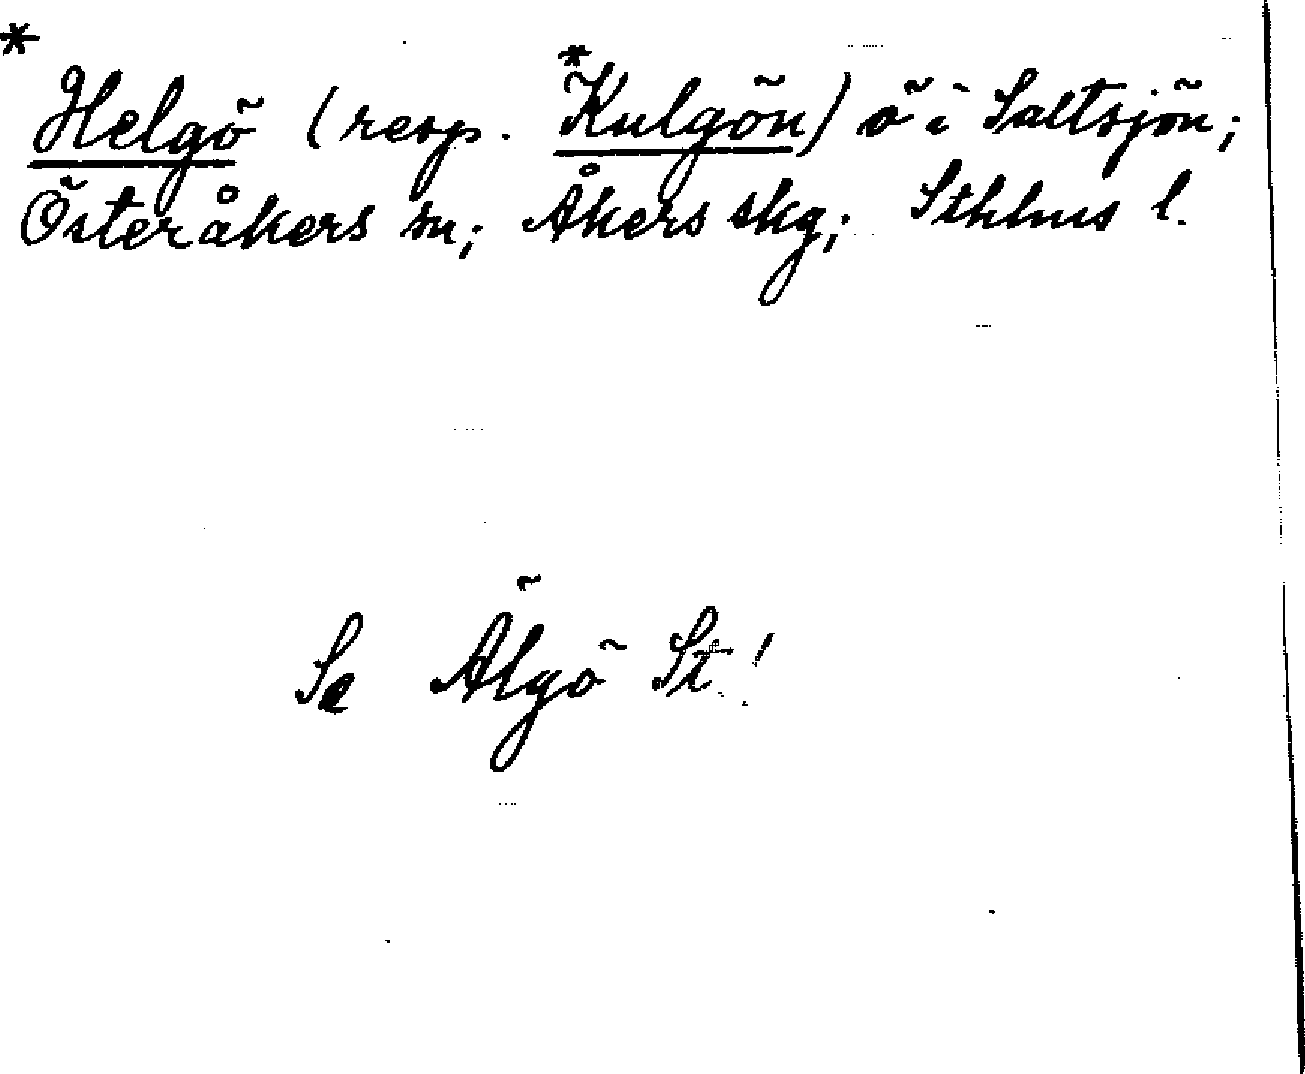 *
Helgö (resp. *Kulgön) ö i Saltsjön;
Österåkers sn; Åkers skg; Sthlms l.
Se Älgö St!